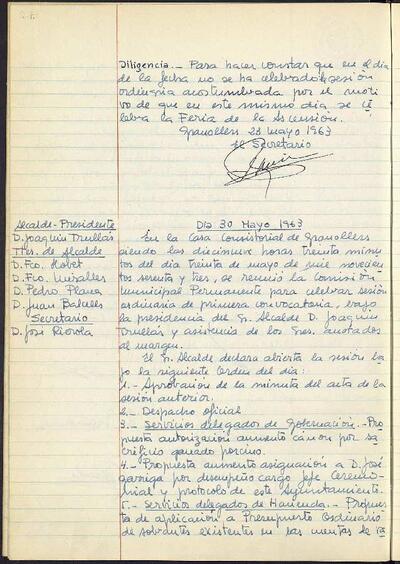 Diligencia.- Para hacer constar que en el dia
de la fecha no se ha celebrado la sesión
ordinaria acostumbrada por el moti-
vo de que en este mismo dia se ce-
lebra la Feria de la Ascensión.
Granollers 23 mayo 1963
El Secretario
Alcalde-Presidente
D. Joaquin Trullás
Ttes. de Alcalde
D. Fco. Llobet
D. Fco.
D. Pedro Plana
D. Juan
Secretario
D. José
Día 30 Mayo 1963
En la Casa Consistorial de Granollers
siendo las diecinueve horas treinta minu-
tos del día treinta de mayo de mil novecien-
tos sesenta y tres, se reunió la Comisión
Municipal Permanente para celebrar sesión
ordinaria de primera convocatoria, bajo
la presidencia del Sr. Alcalde D. Joaquin
Trullás y asistencia de los Sres. anotados
al margen.
El Sr. Alcalde declara abierta la sesión ba-
jo la siguiente Orden del dia:
1.- Aprobación de la minuta del acta de la
sesión anterior.
2.- Despacho oficial
3.- Servicios delegados de Gobernación.- Pro-
puesta autorización aumento cánon por sa-
crificio ganado porcino.
4.- Propuesta aumento asignación a D. José
Garriga por desempeño cargo Jefe Ceremo-
nial y protocolo de este Ayuntamiento.
5.- Servicios delegados de Hacienda.- Propues-
ta de aplicación a Presupuesto Ordinario
de sobrantes existentes en las cuentas de Va-